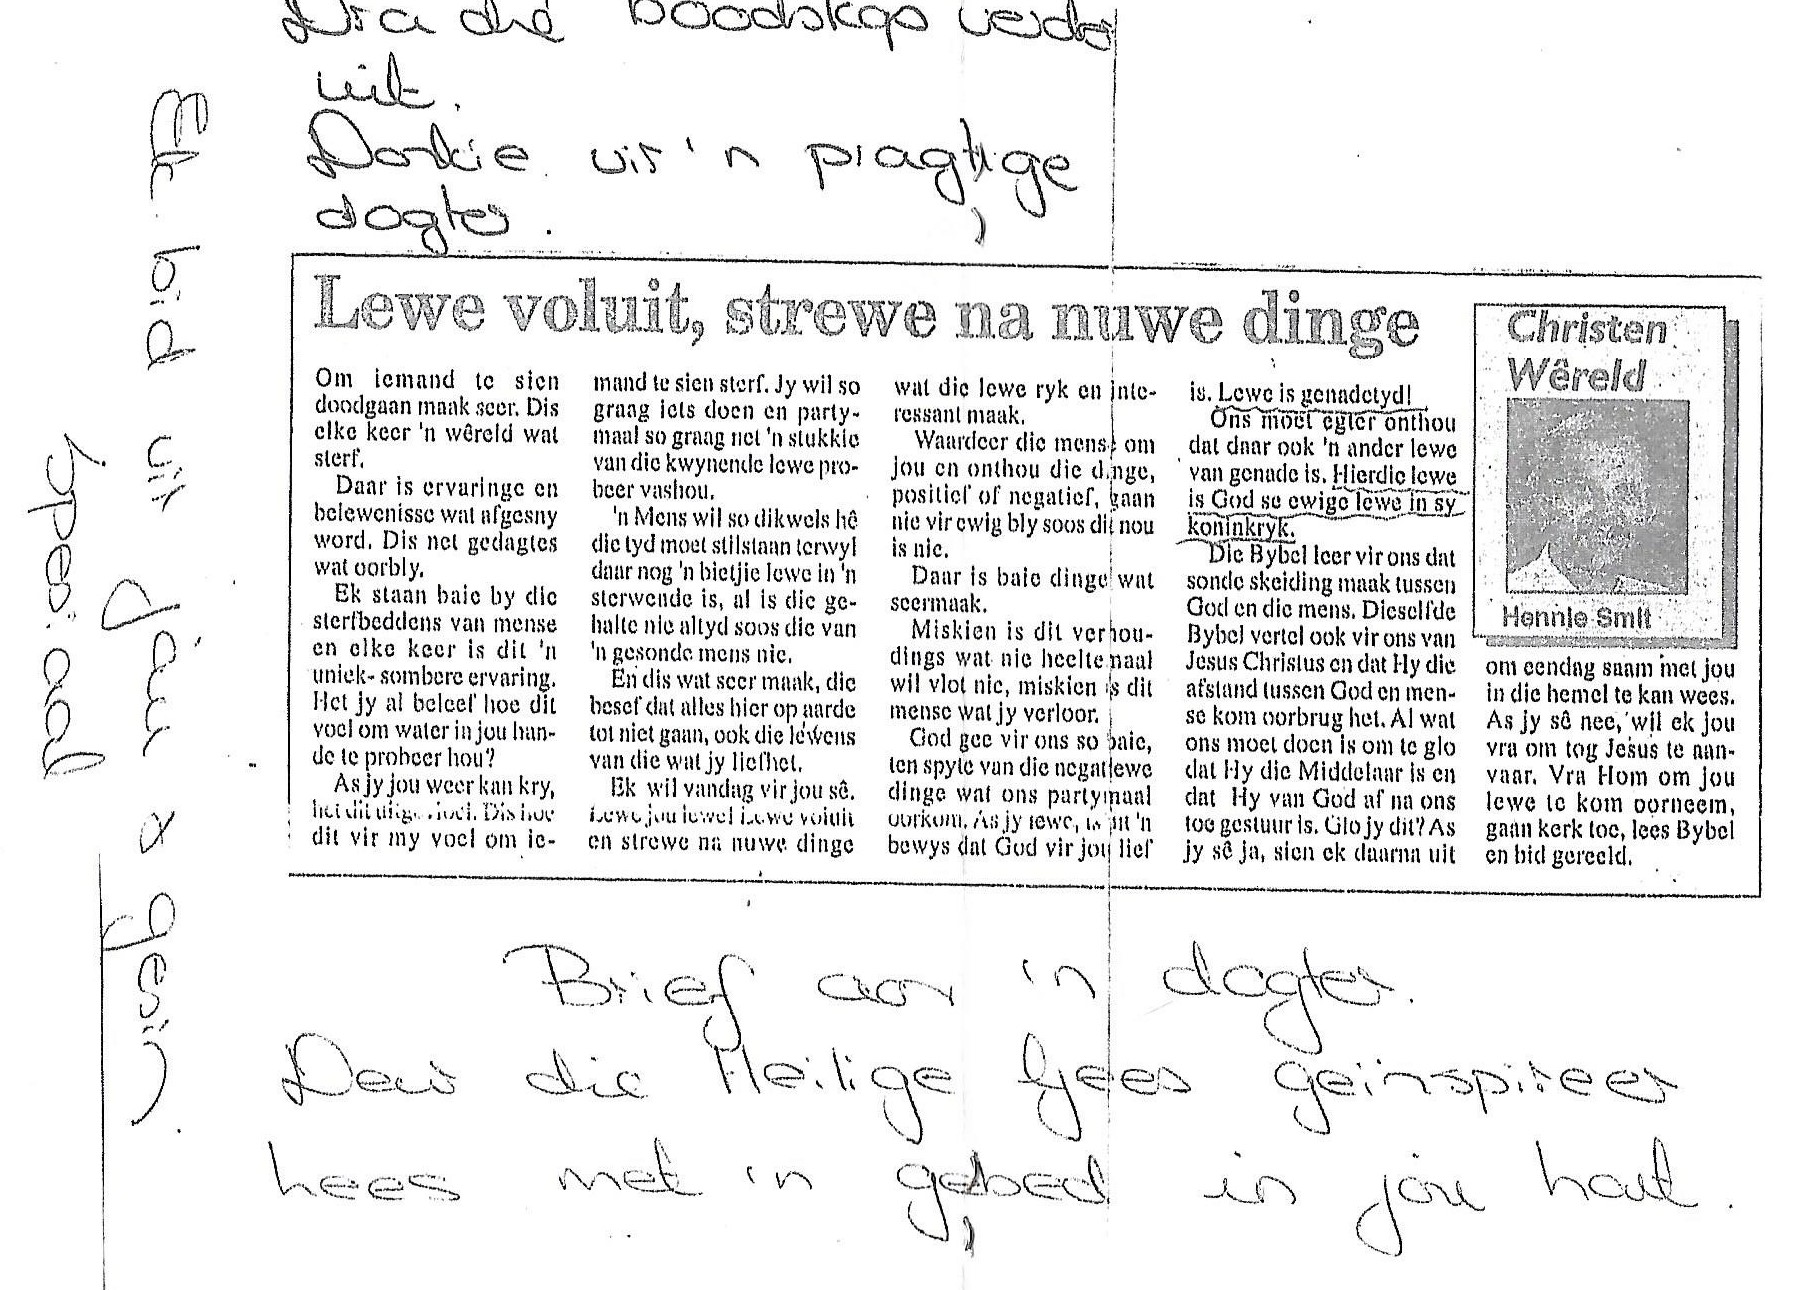 Dra die boodskap verder
uit.
Dankie vir 'n pragtige
dogter.
Ek bid vir jou & gesin
spesiaal
Lewe voluit, strewe na nuwe dinge
Om iemand te sien
doodgaan maak seer. Dis
elke keer 'n wêreld wat
sterf.
Daar is ervaringe en
belewenisse wat afgesny
word. Dis net gedagtes
wat oorbly.
Ek staan baie by die
sterfbeddens van mense
en elke keer is dit 'n
uniek- sombere ervaring.
Het jy al beleef hoe dit
voel om water in jou han-
de te probeer hou?
As jy jou weer kan kry,
het dit Dis hoe
dit vir my voel om ie-
mand te sien sterf. Jy wil so
graag iets doen en party-
maal so graag net 'n stukkie
van die kwynende lewe pro-
beer vashou.
'n Mens wil so dikwels hê
die tyd moet stilstaan terwyl
daar nog 'n bietjie lewe in 'n
sterwende is, al is die ge-
halte nie altyd soos die van
'n gesonde mens nie.
En dis wat seer maak, die
besef dat alles hier op aarde
tot niet gaan, ook die lewens
van die wat jy liefhet.
Ek wil vandag vir jou sê.
Lewe jou lewe! Lewe voluit
en strewe na nuwe dinge
wat die lewe ryk en inte-
ressant maak.
Waardeer die mense om
jou en onthou die dinge,
positief of negatief, gaan
nie vir ewig bly soos dit nou
is nie.
Daar is baie dinge wat
seermaak.
Miskien is dit verhou-
dings wat nie heeltemaal
wil vlot nie, miskien is dit
mense wat jy verloor.
God gee vir ons so baie,
ten spyte van die negatiewe
dinge wat ons partymaal
oorkom. As jy lewe, is dit 'n
bewys dat God vir jou lief
is. Lewe is genadetyd!
Ons moet egter onthou
dat daar ook 'n ander lewe
van genade is. Hierdie lewe
is God se ewige lewe in sy
koninkryk.
Die Bybel leer vir ons dat
sonde skeiding maak tussen
God en die mens. Dieselfde
Bybel vertel ook vir ons van
Jesus Christus en dat Hy die
afstand tussen God en men-
se kom oorbrug het. Al wat
ons moet doen is om te glo
dat Hy die Middelaar is en
dat Hy van God af na ons
toe gestuur is. Glo jy dit? As
jy sê ja, sien ek daarna uit
Christen
Wêreld
Hennie Smit
om eendag saam met jou
in die hemel te kan wees.
As jy sê nee, wil ek jou
vra om tog Jesus te aan-
vaar. Vra Hom om jou
lewe te kom oorneem,
gaan kerk toe, lees Bybel
en bid gereeld.
Brief aan 'n dogter.
Deur die Heilige Gees geïnspireer
Lees met 'n gebed in jou hart.